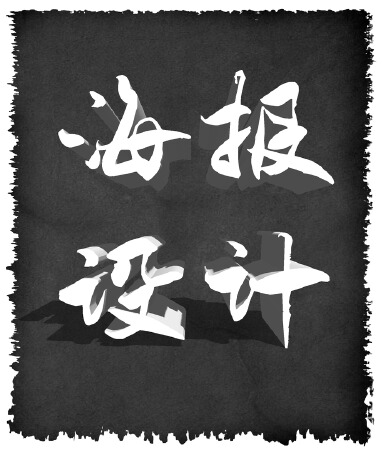 海报
设计